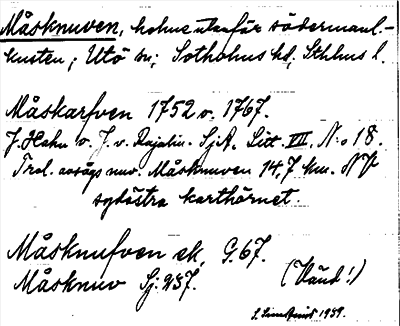 Måsknuven, holme utanför södermanl.-
kusten; Utö sn; Sotholms hd; Sthlms l.
Måskarfven 1752 o. 1767.
J. Hahn o. J. v. Rajalin. SjA. Litt. VII, N:o 18.
Trol. avsågs nuv. Måsknuven 14,7 km. NV
sydöstra karthörnet.
Måsknufven ek, G. 67.
Måsknuv Sj: 257. (Vänd!)
1939.